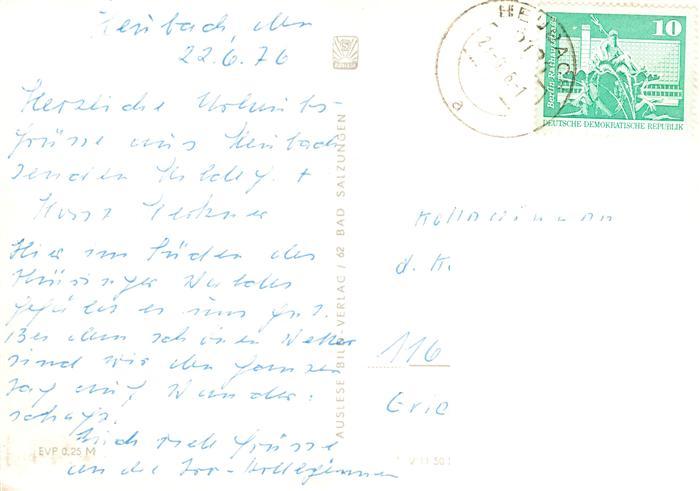 Heubach, den
22.6.76
Herzliche Urlaubs-
grüsse aus Heubach
senden Hildeg. +
Horst
Hier im Süden des
Thüringer Waldes
gefällt es uns gut.
Bei dem schönen Wetter
sind wir den ganzen
Tag auf Wander-
schaft.
Auch viele Grüsse
an die
EVP 0,25 M
AUSLESE BILD-VERLAG / 62 BAD SALZUNGEN
HEUBACH
10
Berlin
DEUTSCHE DEMOKRATISCHE REPUBLIK
d. K.
116
V 11 50